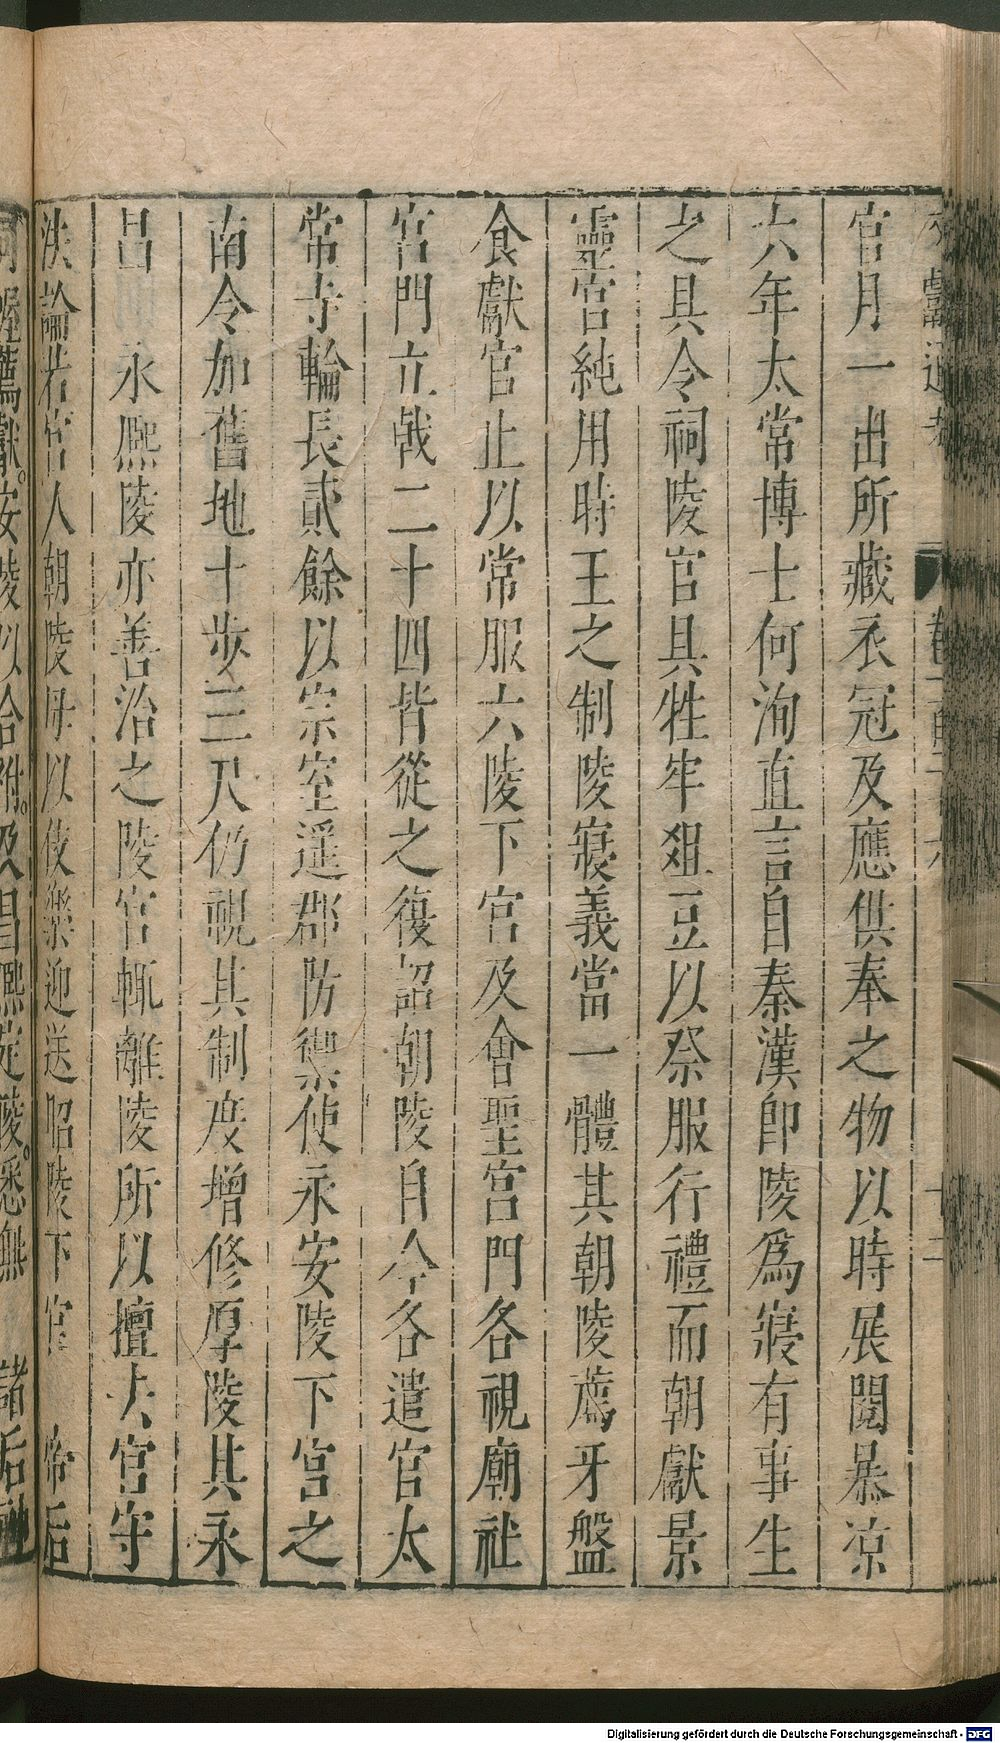 文獻通考 卷一百二十六 十二
官月一出所藏衣冠及應供奉之物以時展閱暴凉
六年太常博士何洵直言自秦漢卽陵爲寢有事生
之具今祠陵官具牲牢俎豆以祭服行禮而朝獻景
靈宮純用時王之制陵寢義當一體其朝陵薦牙盤
食獻官止以常服六陵下宮及會聖宮門各視廟社
宮門立戟二十四皆從之復詔朝陵自今各遣官太
常寺輪長貳餘以宗室遥郡防禦使永安陵下宮之
南令加舊地十步三尺仍視其制度增修厚陵其永
昌 永熙陵亦善治之陵官輒離陵所以擅去官守
法論若宮人朝陵毋以伎樂迎送昭陵下宮 帝后
薦獻。安陵以合祔。及昌熙定陵。悉無 諸后
Digitalisierung gefördert durch die Deutsche Forschungsgemeinschaft - DFG